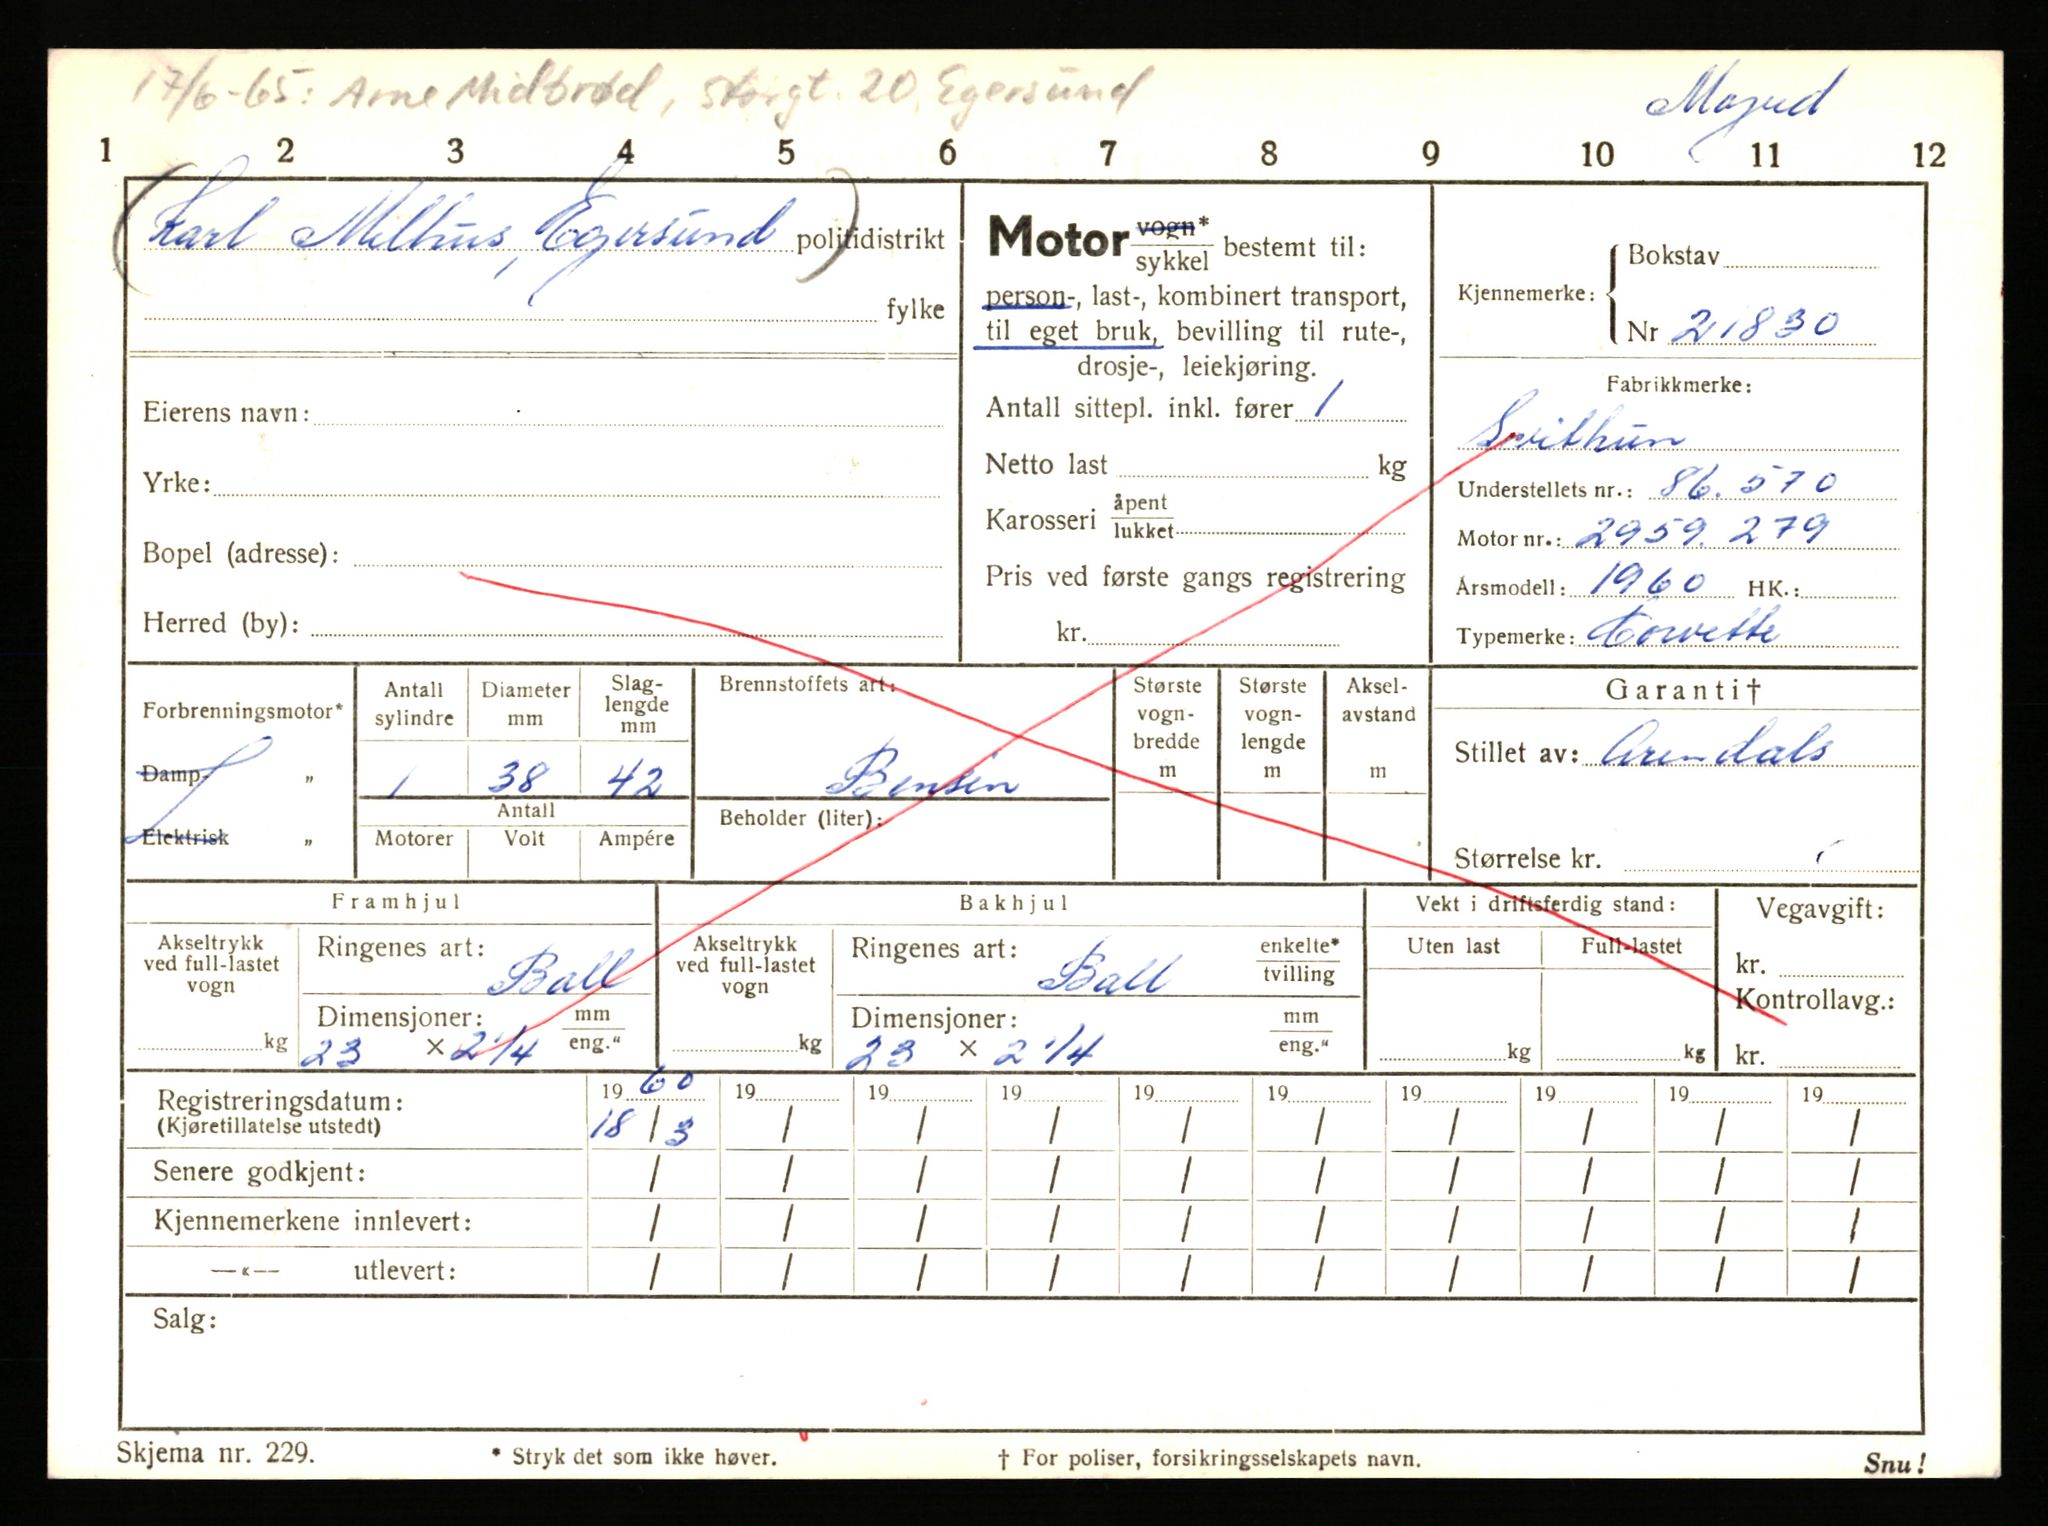 17/6-65: Arne Midbrød, Storgt. 20, Egersund
Moped
1 2 3 4 5 6 7 8 9 10 11 12
(Karl Melhus, Egersund) politidistrikt
fylke
Eierens navn:
Yrke:
Bopel (adresse):
Herred (by):
Motor vogn* / sykkel bestemt til:
person-, last-, kombinert transport,
til eget bruk, bevilling til rute-,
drosje-, leiekjøring.
Antall sittepl. inkl. fører 1
Netto last kg
Karosseri åpent / lukket
Pris ved første gangs registrering
kr.
Kjennemerke: { Bokstav
Nr 21830
Fabrikkmerke:
Svithun
Understellets nr.: 86.570
Motor nr.: 2959.279
Årsmodell: 1960 HK.:
Typemerke: Corvette
Forbrenningsmotor*
Damp- „
Elektrisk „
Antall sylindre
1
Diameter mm
38
Slag-
lengde
mm
42
Antall
Motorer Volt Ampére
Brennstoffets art:
Bensin
Beholder (liter):
Største
vogn-
bredde
m
Største
vogn-
lengde
m
Aksel-
avstand
m
Garanti†
Stillet av: Arendals
Størrelse kr.
Framhjul
Akseltrykk
ved full-lastet
vogn
kg
Ringenes art:
Ball
Dimensjoner: mm / eng."
23 × 2 1/4
Bakhjul
Akseltrykk
ved full-lastet
vogn
kg
Ringenes art: enkelte* / tvilling
Ball
Dimensjoner: mm / eng."
23 × 2 1/4
Vekt i driftsferdig stand:
Uten last Full-lastet
kg kg
Vegavgift:
kr.
Kontrollavg.:
kr.
Registreringsdatum: 1960 19 19 19 19 19 19 19 19 19
(Kjøretillatelse utstedt) 18/3 / / / / / / / / /
Senere godkjent: / / / / / / / / / /
Kjennemerkene innlevert: / / / / / / / / / /
—«— utlevert: / / / / / / / / / /
Salg:
Skjema nr. 229. * Stryk det som ikke høver. † For poliser, forsikringsselskapets navn. Snu!